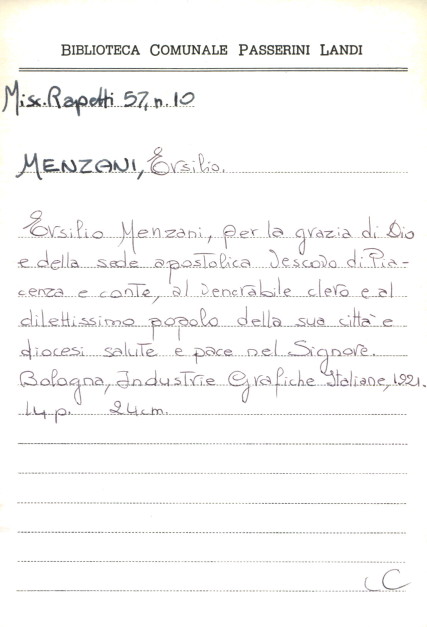 BIBLIOTECA COMUNALE PASSERINI LANDI
Misc. Rapetti 57, n. 10
MENZANI, Ersilio.
Ersilio Menzani, per la grazia di Dio
e della sede apostolica Vescovo di Pia-
cenza e conte, al venerabile clero e al
dilettissimo popolo della sua città e
diocesi salute e pace nel Signore.
Bologna, Industrie Grafiche Italiane, 1921.
14 p. 24 cm.
LC